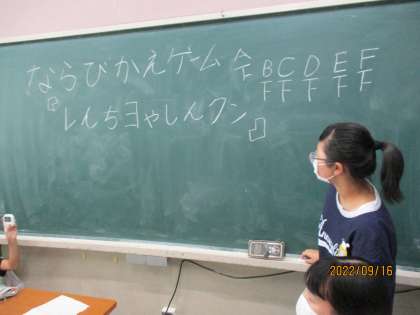 ならびかえゲーム A B C D E F
F F F F F F
『しんちヨゃしんクン』
2022/09/16